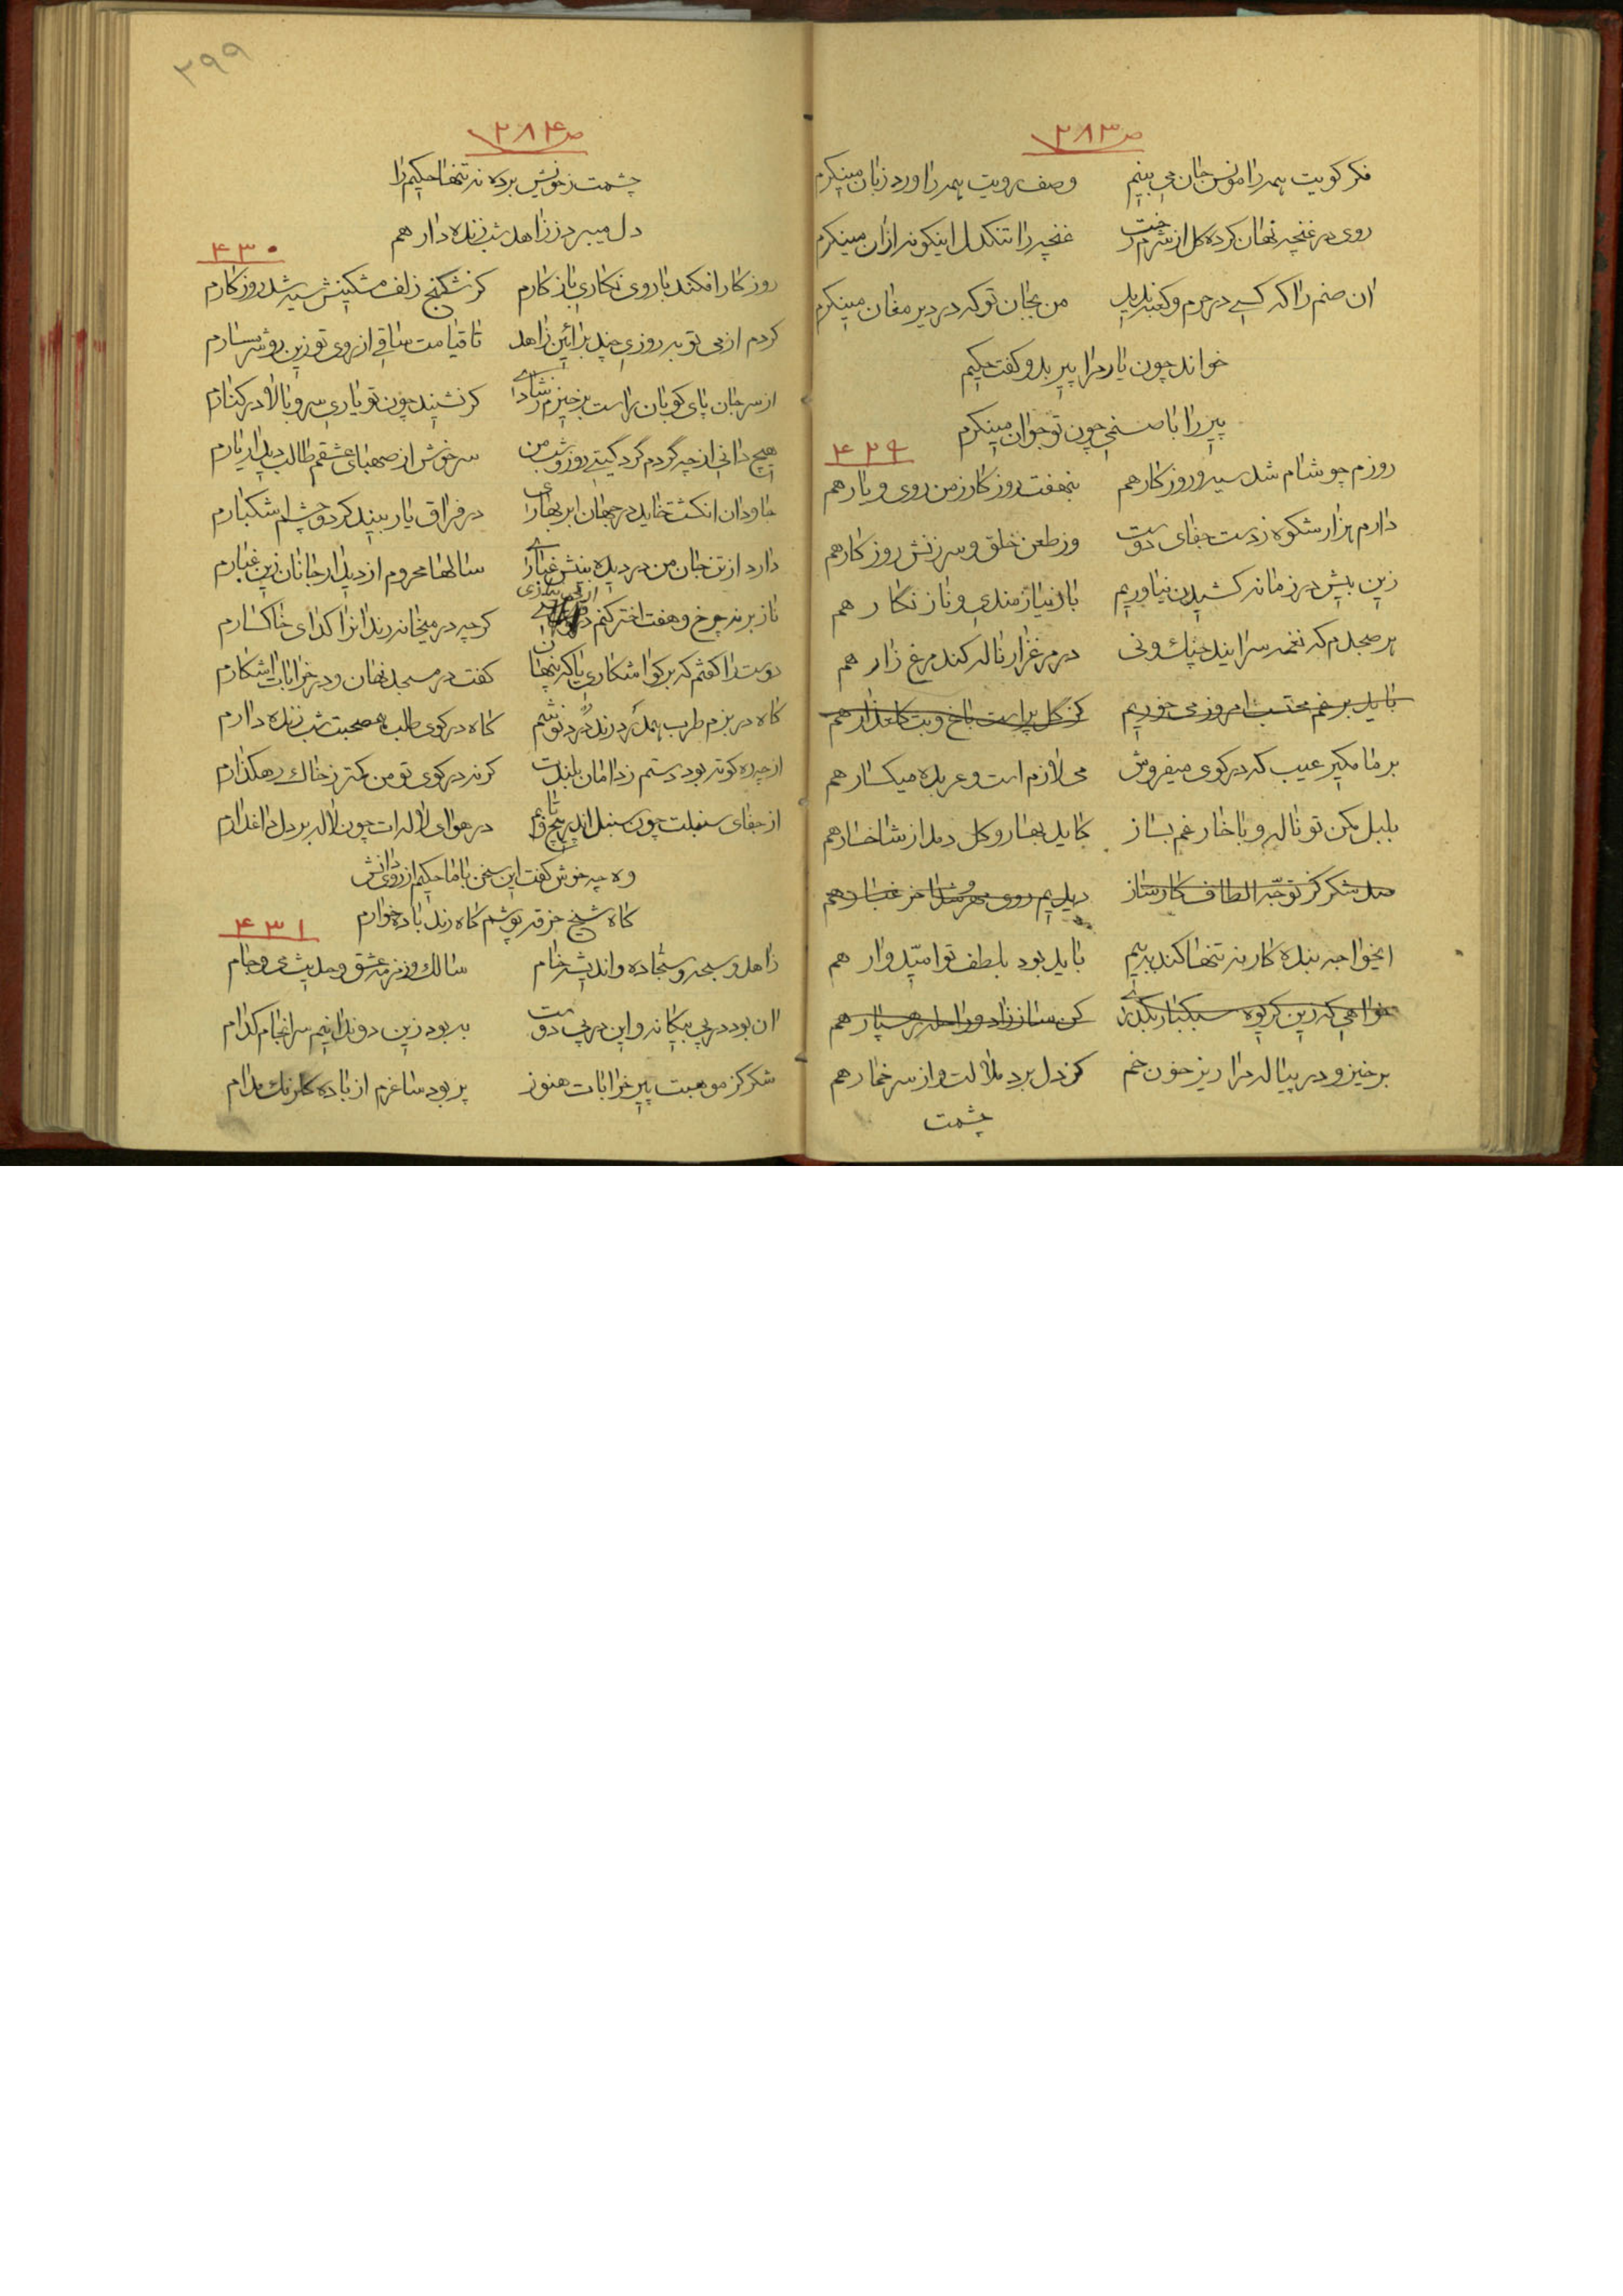 ص ۲۸۳
فکر کویت همه را مونس جان می بینم وصف رویت همه را ورد زبان مینکرم
روی در غنچه نهان کرده کل از شرم رخت غنچه را تنکدل اینکونه ازان مینکرم
ان صنم را که کسی در حرم و کعبه ندید من بجان تو که در دیر مغان مینکرم
خواند چون یار مرا پیر بدو کفت حکیم
پیر را با صنمی چون تو جوان مینکرم
۴۲۹
روزم چو شام شد سیه و روزکار هم بنهفت روزکار ز من روی و یار هم
دارم هزار شکوه ز دست جفای دوست وز طعن خلق و سرزنش روزکار هم
زین بیش در زمانه کشیدن نیاوریم بار نیازمندی و ناز نکار هم
هر صبحدم که نغمه سرایند چنك و نی در مرغزار ناله کند مرغ زار هم
باید برغم محتسب امروز می خوریم کز کل پر است باغ و بت کلعذار هم
بر ما مکیر عیب که در کوی میفروش می لازم است و عربده میکسار هم
بلبل مکن تو ناله و با خار غم بساز کاید بهار و کل دمد از شاخسار هم
صد شکر کز توجه الطاف کارساز دیدیم روی مهر شد اخر غبار هم
ایخواجه بنده کار نه تنها کند به بیم باید بود بلطف تو امیدوار هم
خواهی که زین کریوه سبکبار بکذری کن ساز زاد و راحله رهسپار هم
برخیز و در پیاله مرا ریز خون خم کز دل برد ملالت و از سر خمار هم
چشمت
۲۹۹
ص ۲۸۴
چشمت ز خویش برده نه تنها حکیم را
دل میبرد ز زاهد شب زنده دار هم
۴۳۰
روز کار افکند با روی نکاری باز کارم کز شکنج زلف مشکینش سیه شد روزکارم
کردم از می توبه روزی چند بر ائین زاهد تا قیامت ساقی از روی تو زین رو شرمسارم
از سر جان پای کوبان راست برخیزم ز شادی کر نشیند چون تو یاری سرو بالا در کنارم
هیچ دانی از چه گردم گرد کیتی روز و شب من سر خوش از صهبای عشقم طالب دیدار یارم
جاودان انکشت خاید در جهان ابر بهاری در فراق یار بیند کر دو چشم اشکبارم
دارد از تن جان من در دیده بینش غباری سالها محروم از دیدار جانان زین غبارم
ناز بر نه چرخ و هفت اختر کنم از بی نیازی کرچه در میخانه رندانرا کدای خاکسارم
دوست را کفتم که بر کو اشکاری یا که پنهان کفت در مسجد نهان و در خرابات اشکارم
کاه در بزم طرب همدرد رند درد نوشم کاه در کوی طلب هم صحبت شب زنده دارم
از چه ره کوته بود دستم ز دامان بلندت کر نه در کوی تو من کمتر ز خاك رهکذارم
از جفای سنبلت چون سنبل اندر پیچ و تابم در هوای لاله ات چون لاله بر دل داغدارم
وه چه خوش کفت این سخن با ما حکیم از روی دانش
کاه شیخ خرقه پوشم کاه رند باده خوارم
۴۳۱
زاهد و سبحه و سجاده و اندیشه خام سالك و زمزمه عشق و حدیث می و جام
ان بود در پی بیکانه و این در پی دوست به بود زین دو ندانیم سرانجام کدام
شکر کز موهبت پیر خرابات هنوز پر بود ساغرم از باده کلرنك مدام